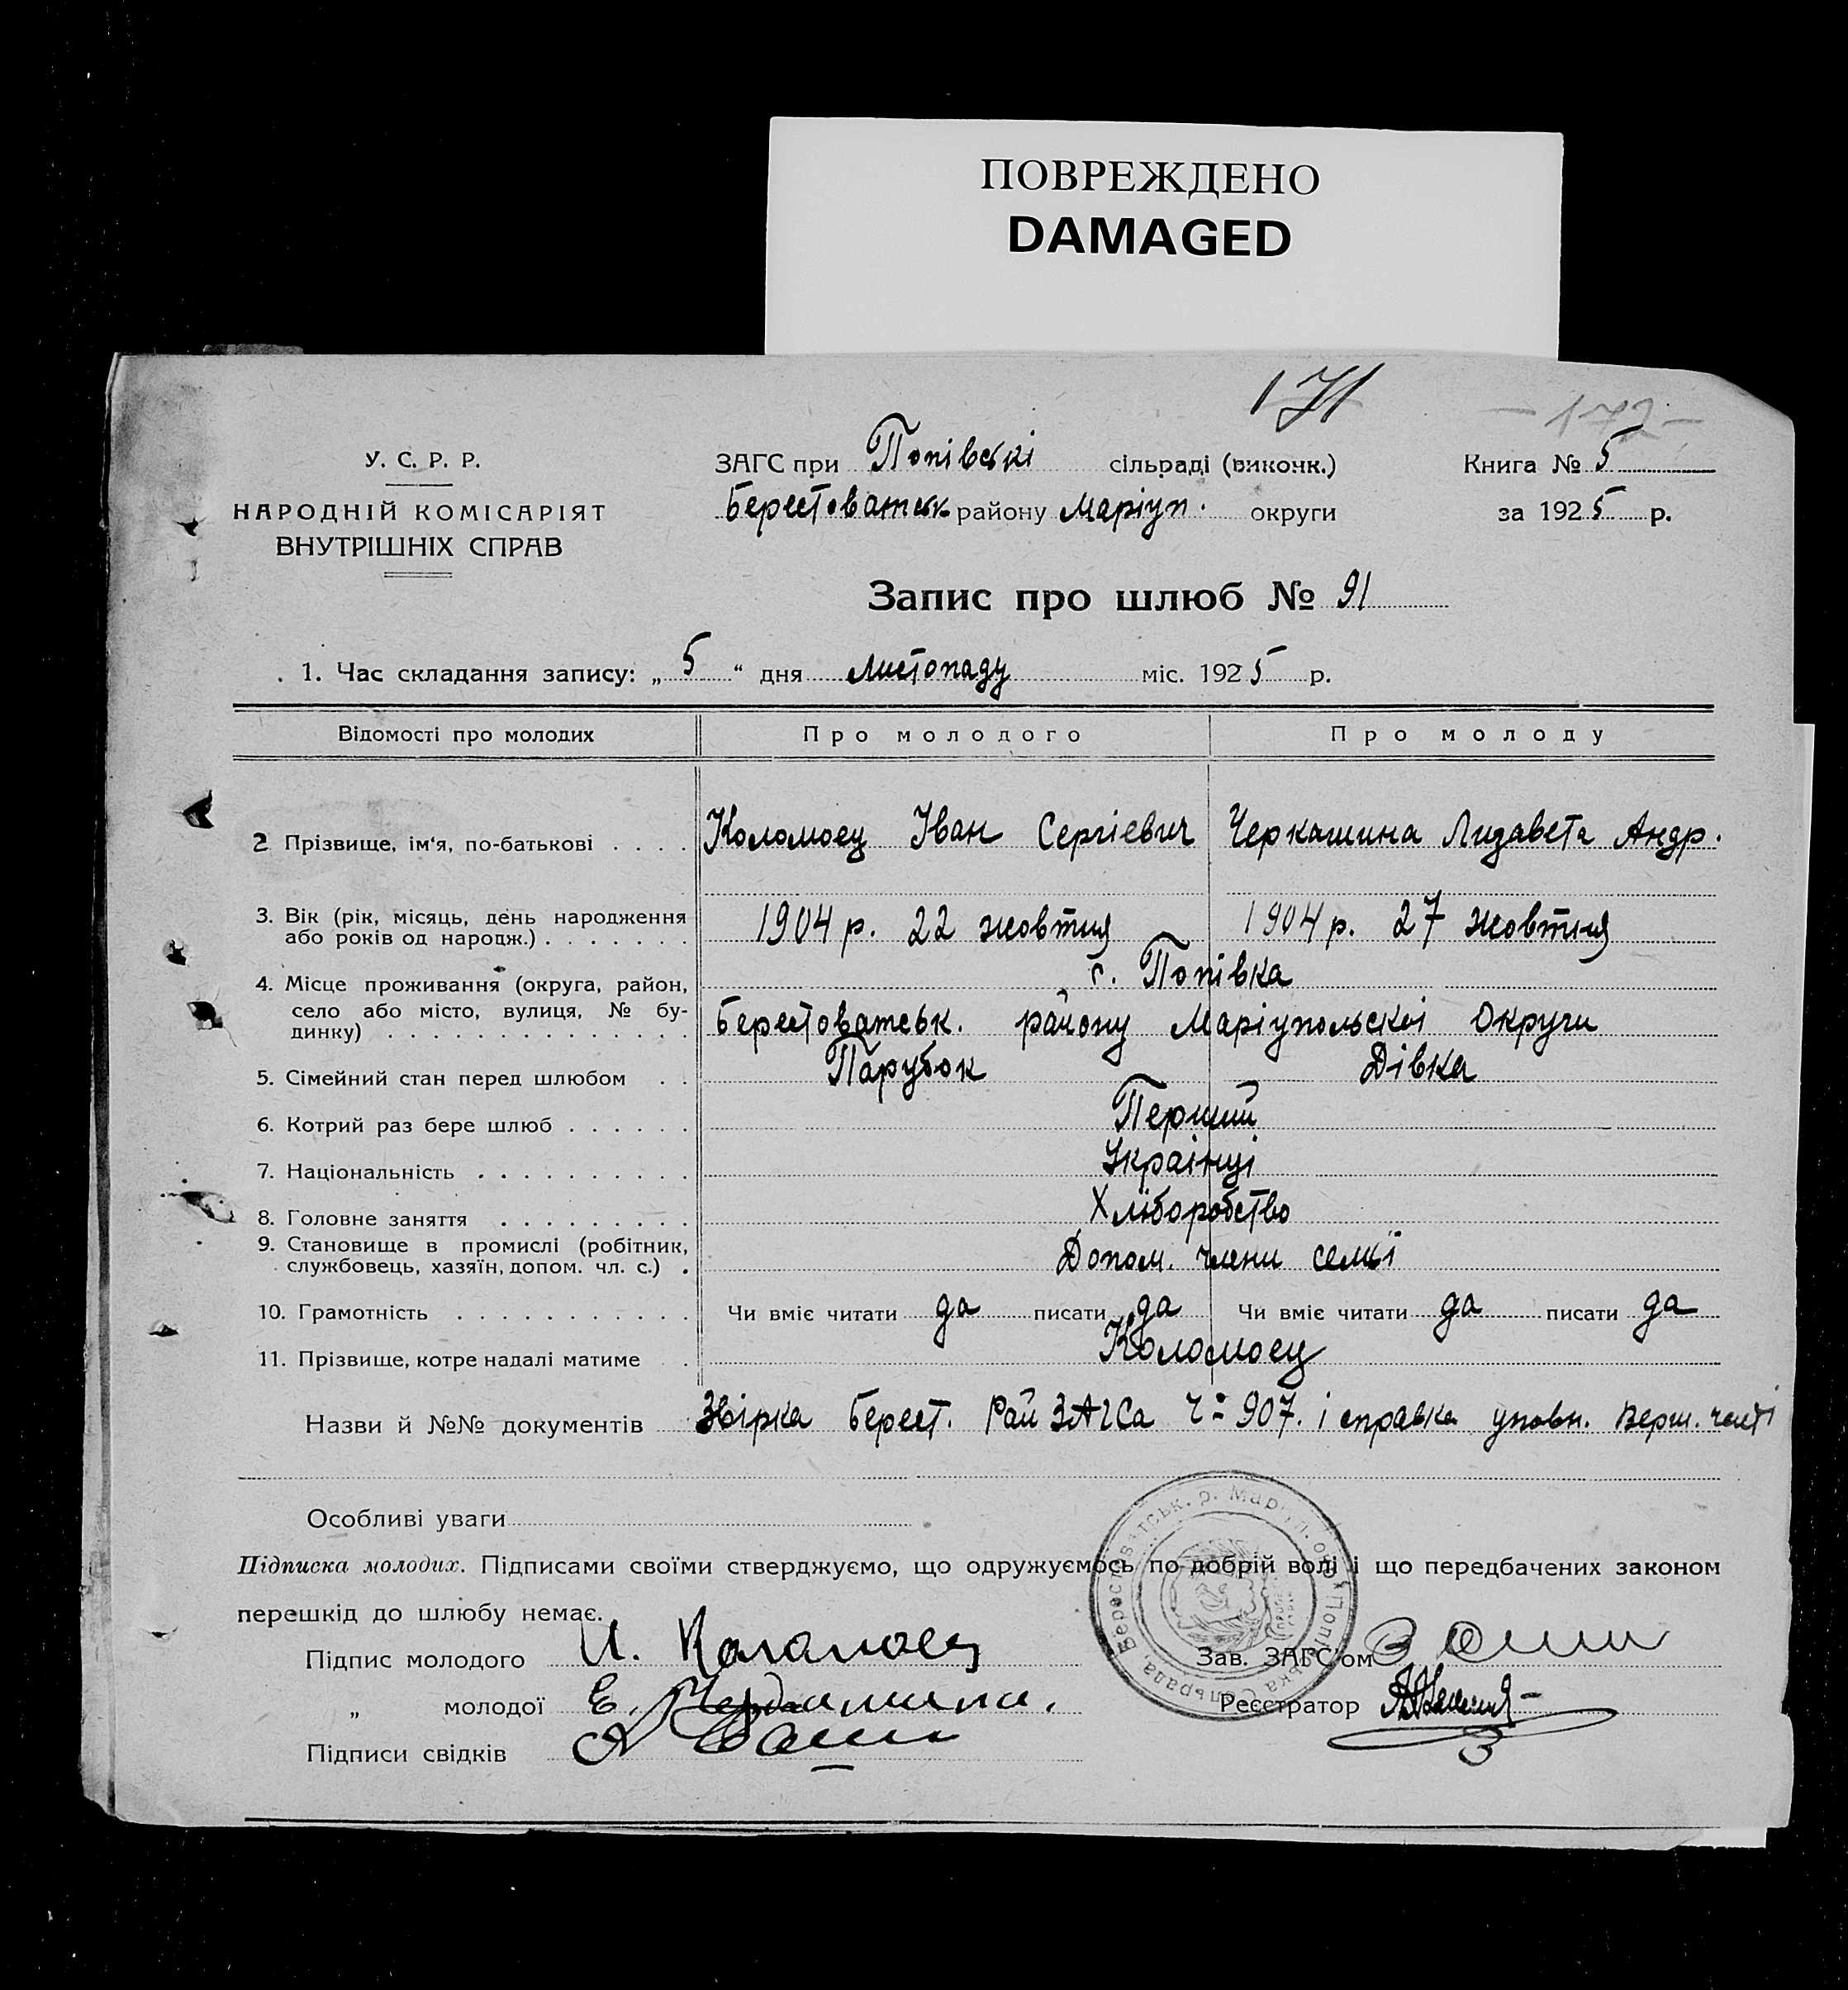 ПОВРЕЖДЕНО
DAMAGED
171
- 172 -
У. С. Р. Р.
НАРОДНІЙ КОМІСАРІЯТ
ВНУТРІШНІХ СПРАВ
ЗАГС при Попівскі сільраді (виконк.)
Берестоватськ району Маріуп. округи
Книга № 5
за 1925 р.
Запис про шлюб № 91
1. Час складання запису: „5“ дня листопаду міс. 1925 р.
Відомості про молодих Про молодого Про молоду
2 Прізвище, ім'я, по-батькові . . . . Коломоец Іван Сергіевич Черкашина Лизавета Андр.
3. Вік (рік, місяць, день народження
або років од народж.) . . . . . . . 1904 р. 22 жовтня 1904 р. 27 жовтня
4. Місце проживання (округа, район, с. Попівка
село або місто, вулиця, № бу-
динку) . . . . . . . . . . . . . . Берестоватськ. району Маріупольскоі Округи
5. Сімейний стан перед шлюбом . . Парубок Дівка
6. Котрий раз бере шлюб . . . . . . Перший
7. Національність . . . . . . . . . . Украінці
8. Головне заняття . . . . . . . . . Хліборобство
9. Становище в промислі (робітник,
службовець, хазяїн, допом. чл. с.) . Допом. члени семьї
10. Грамотність . . . . . . . . . . . Чи вміє читати да писати да Чи вміє читати да писати да
11. Прізвище, котре надалі матиме . Коломоец
Назви й №№ документів Звірка Берест. Рай ЗАГСа Ч: 907. і справка уповн. Верш.
Особливі уваги
Підписка молодих. Підписами своїми стверджуємо, що одружуємось по добрій волі і що передбачених законом
перешкід до шлюбу немає.
Підпис молодого И. Коломоец
Зав. ЗАГС'ом
„ молодої Е. Черкашина.
Реєстратор
Підписи свідків
Берестоватськ. р. Маріуп. окр. Попівська Сільрада